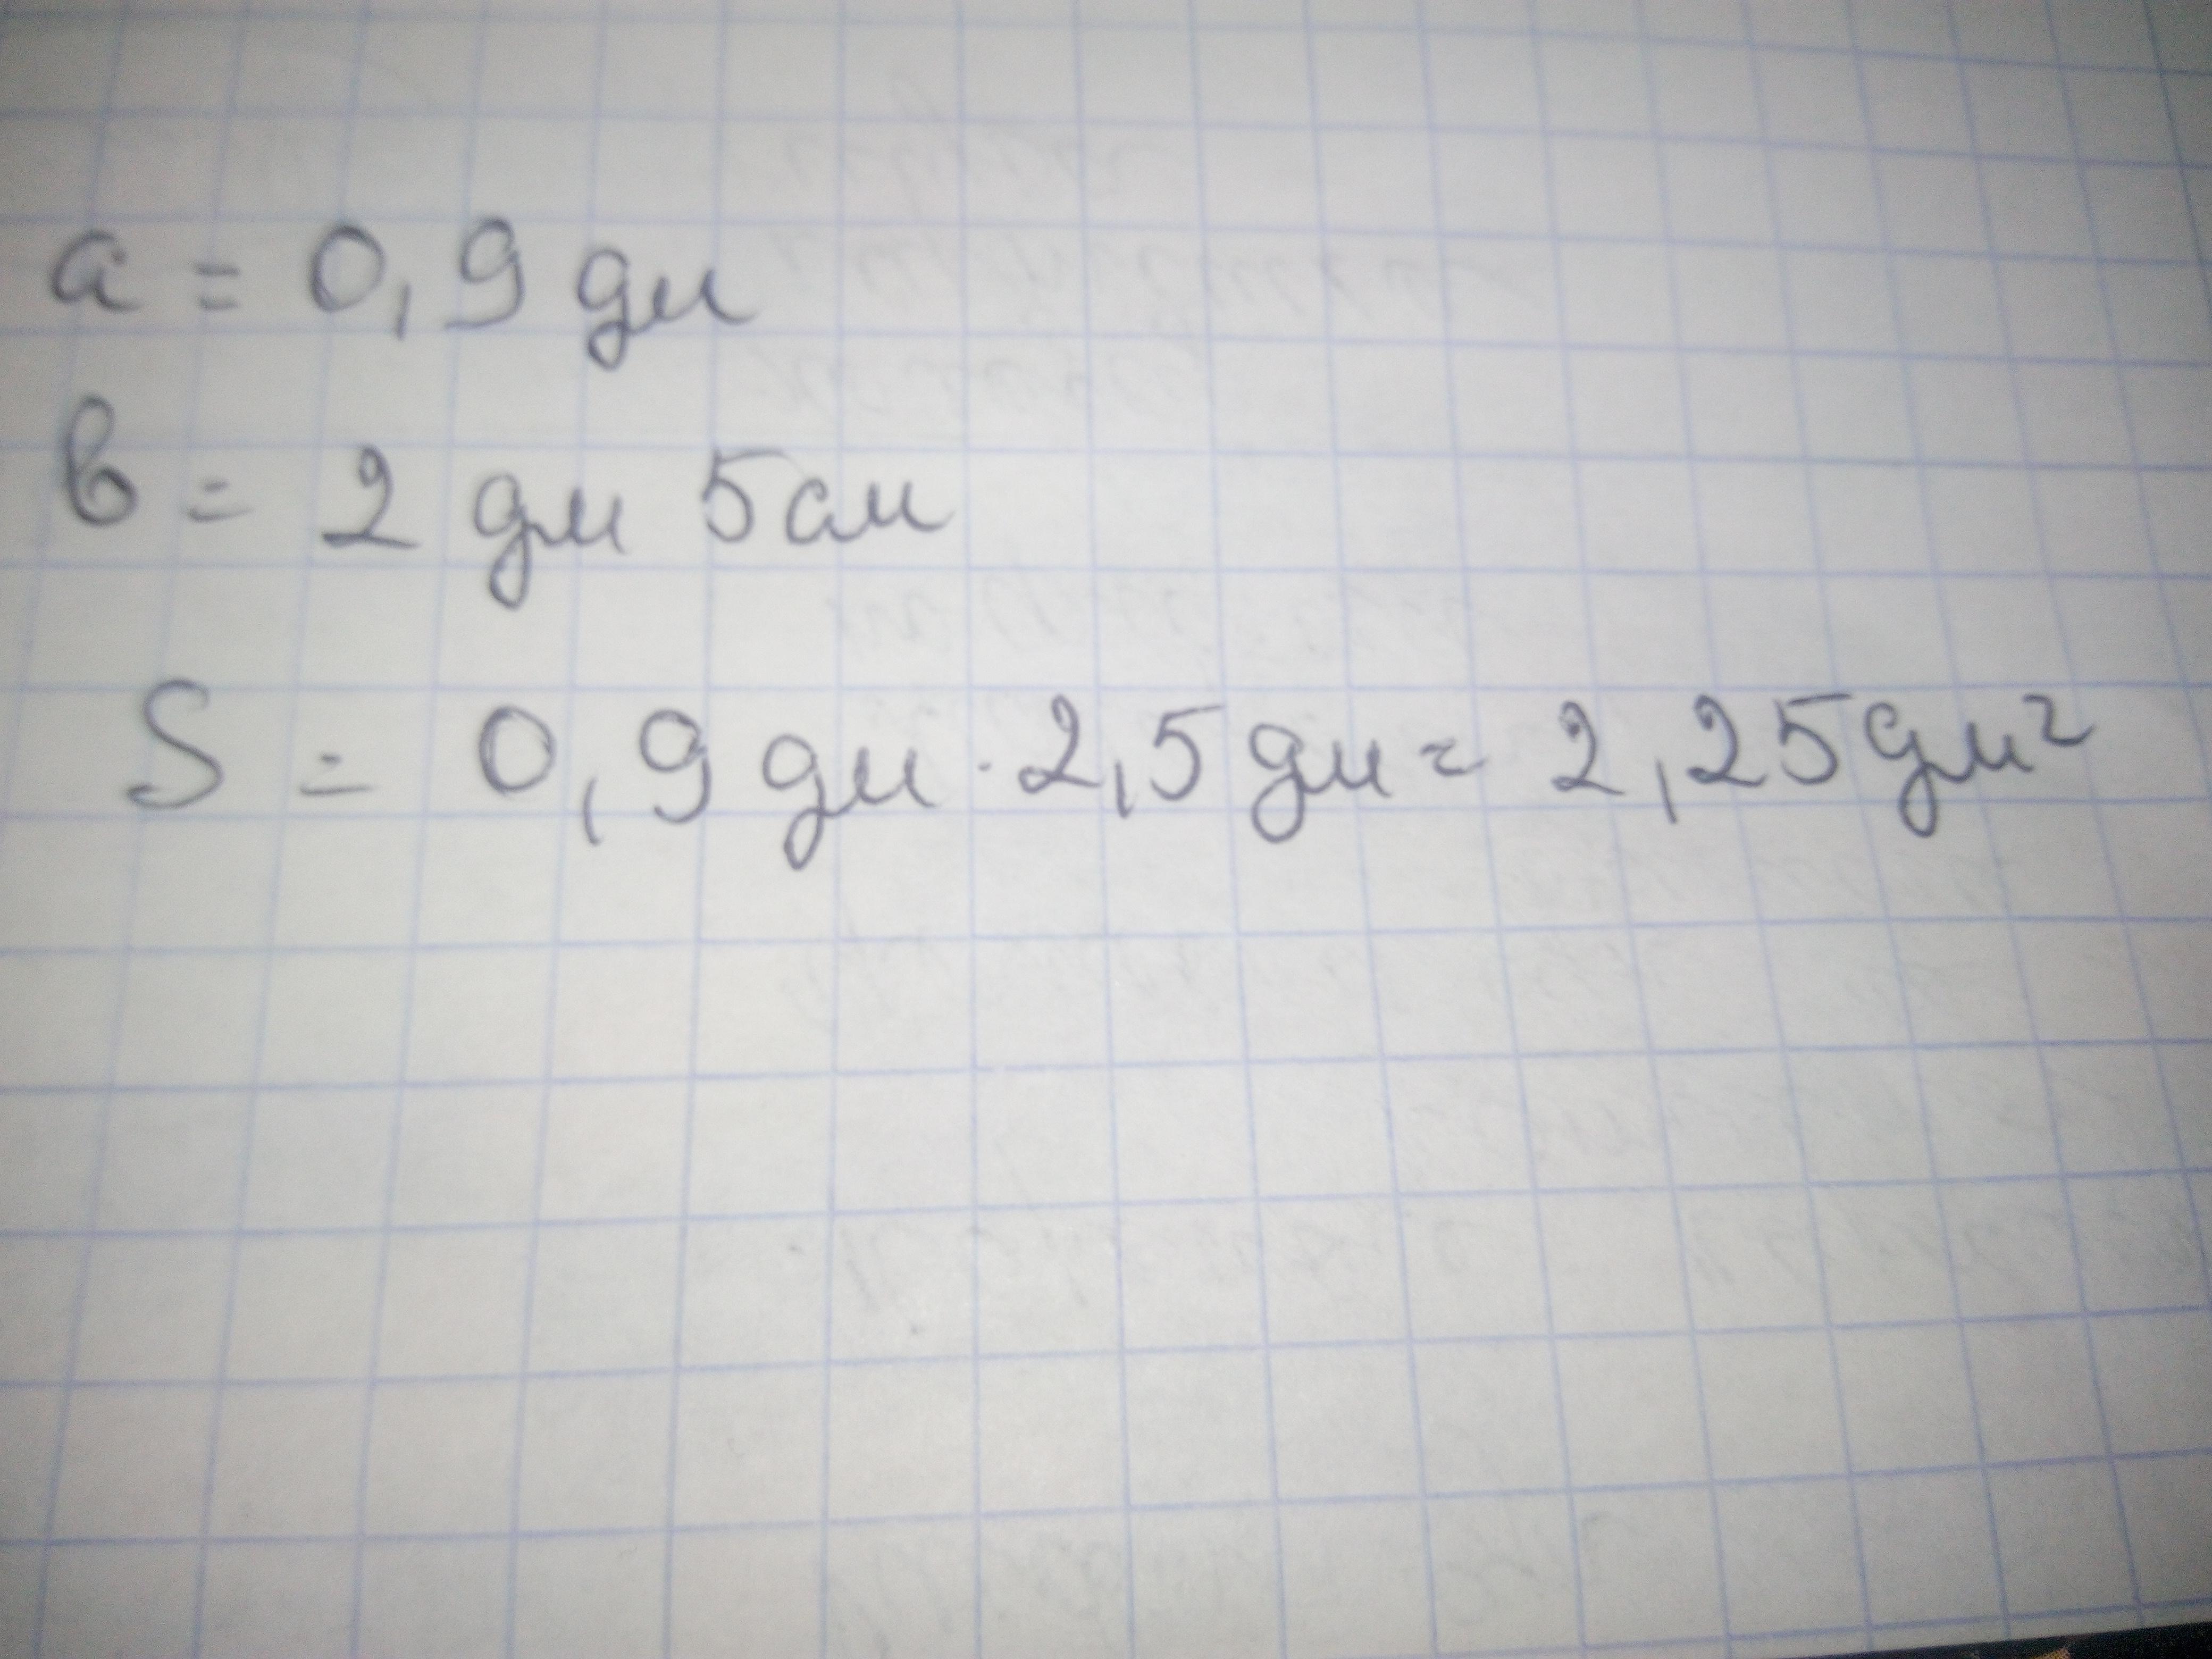 a = 0,9 дм
в = 2 дм 5см
S = 0,9 дм · 2,5 дм = 2,25 дм²